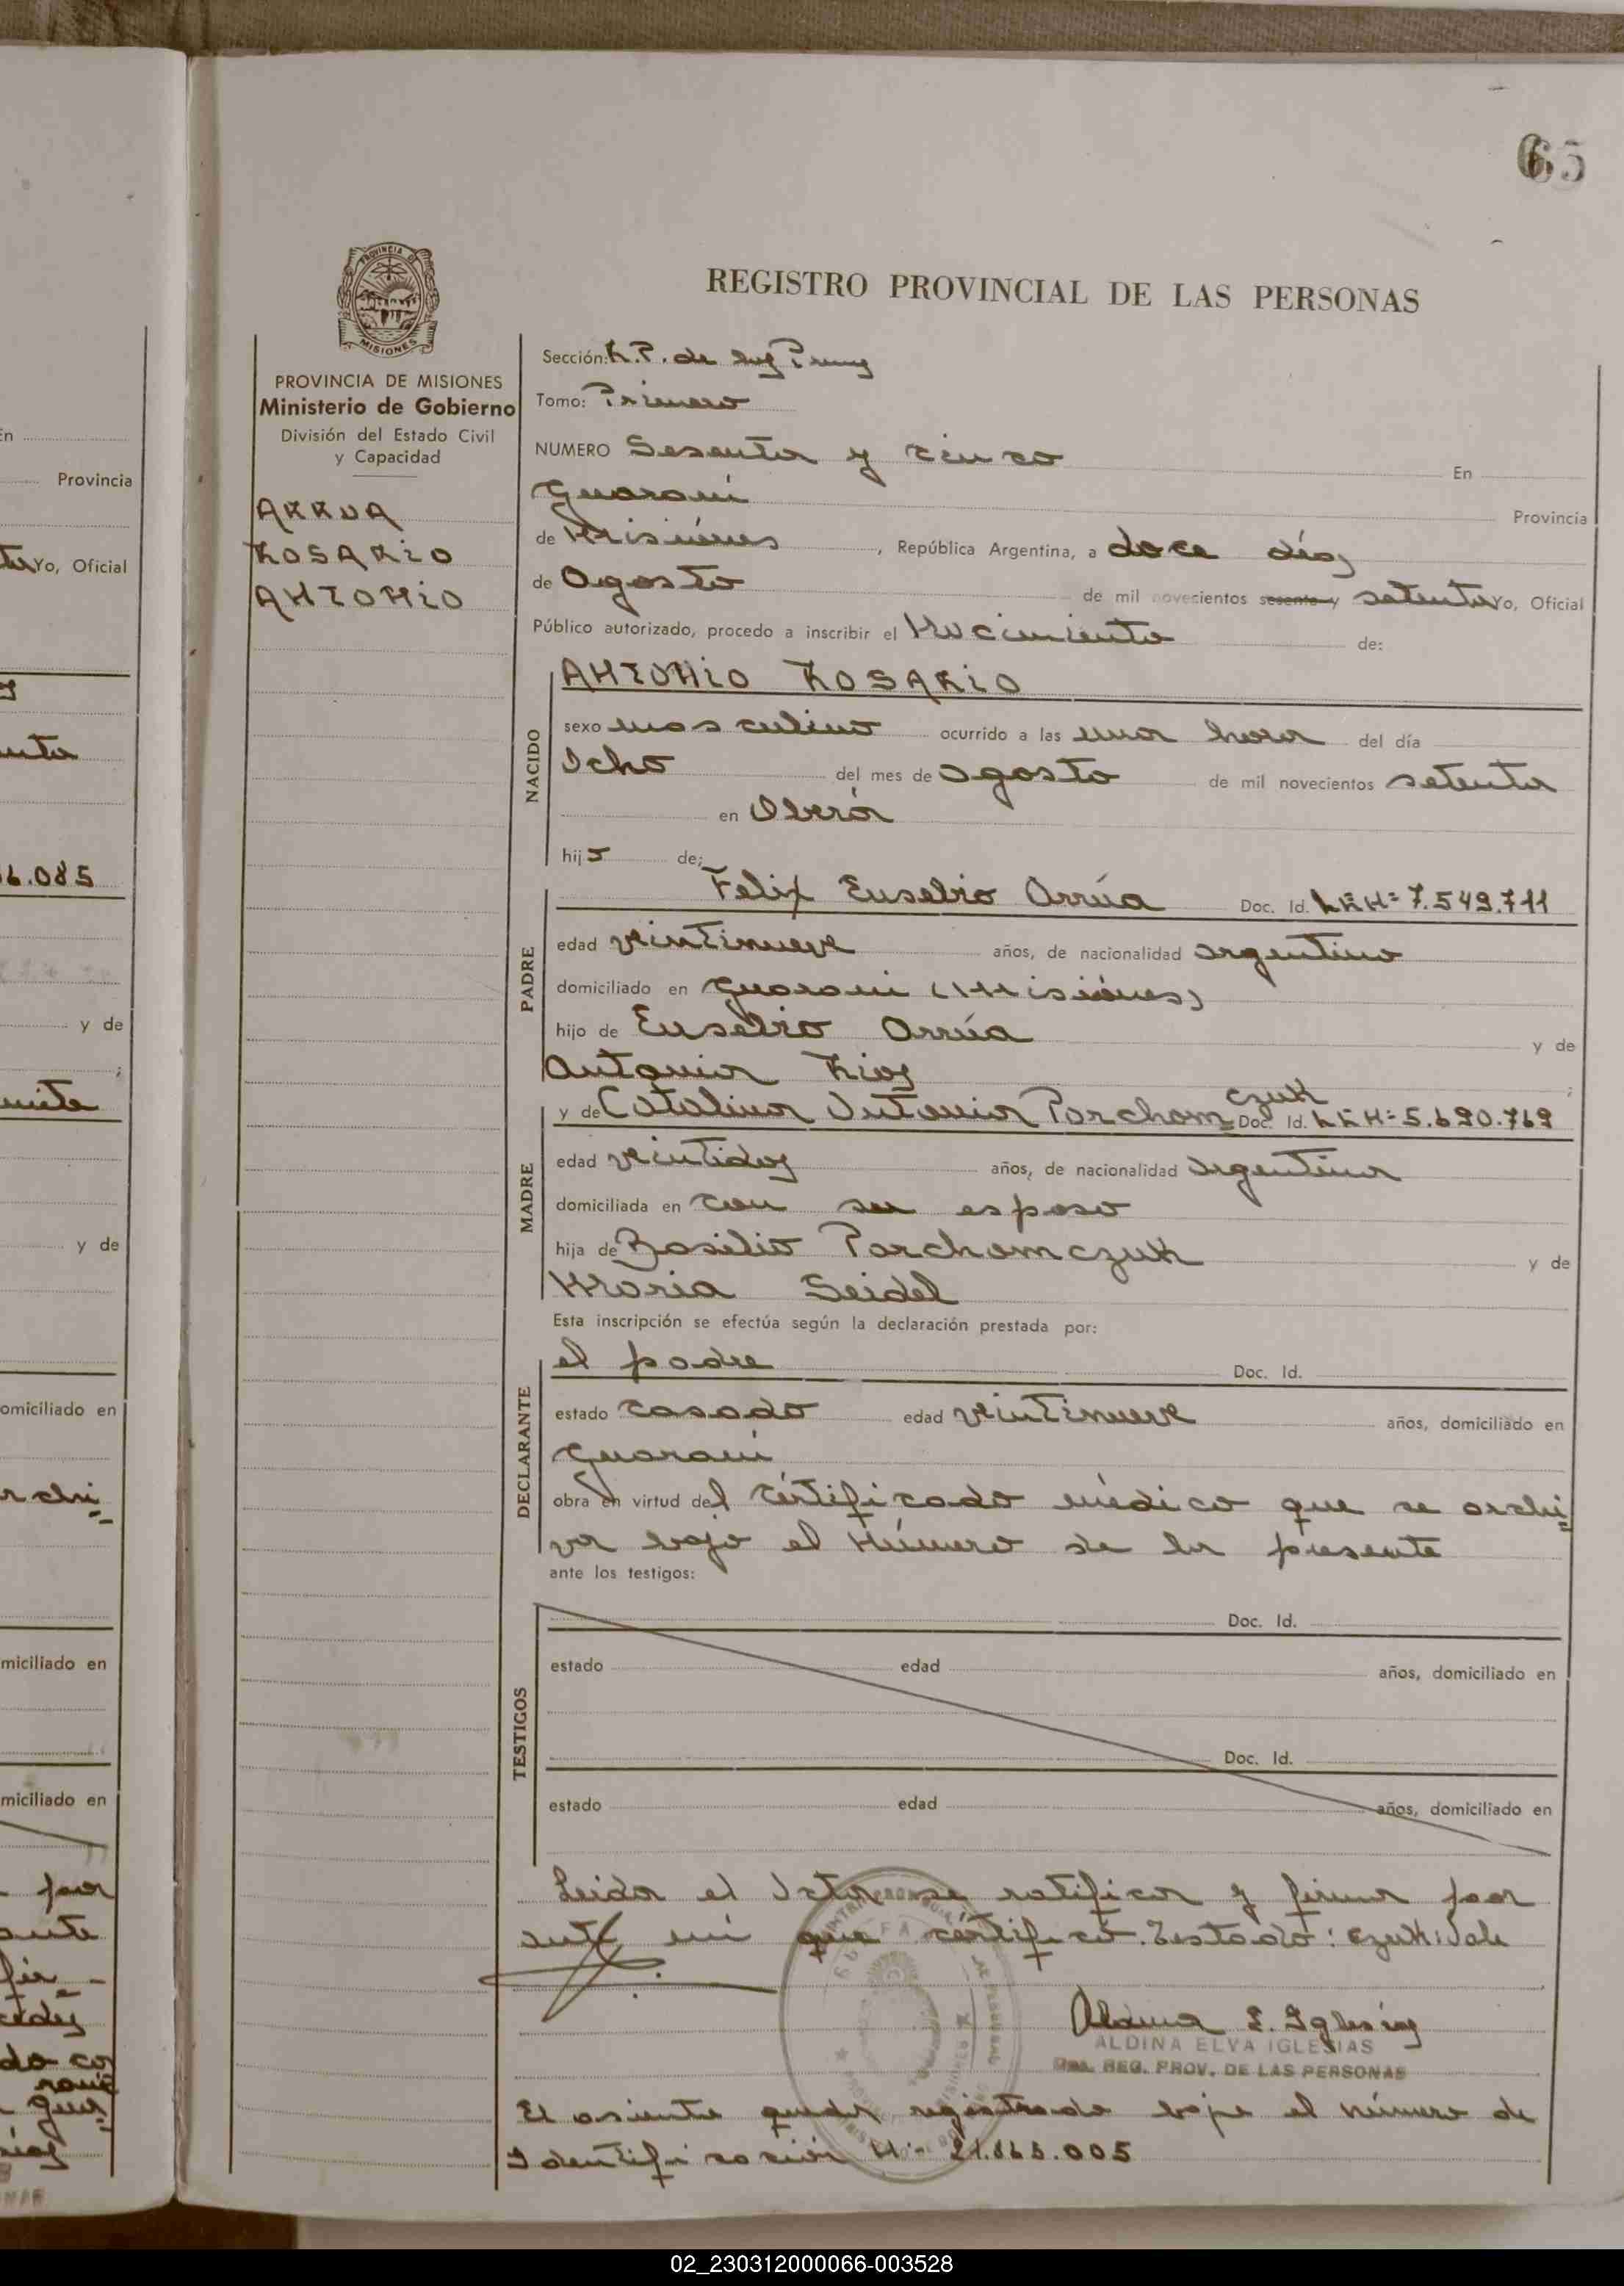 65
REGISTRO PROVINCIAL DE LAS PERSONAS
PROVINCIA DE
MISIONES
PROVINCIA DE MISIONES
Ministerio de Gobierno
División del Estado Civil
y Capacidad
ARRUA
ROSARIO
ANTONIO
Sección: R.P. de las
Tomo: Primero
NUMERO Sesenta y cinco En
Guaraní Provincia
de Misiónes, República Argentina, a doce días
de Agosto de mil novecientos sesenta y setenta Yo, Oficial
Público autorizado, procedo a inscribir el Nacimiento de:
NACIDO
ANTONIO ROSARIO
sexo masculino ocurrido a las una hora del día
Ocho del mes de Agosto de mil novecientos setenta
en Oberá
hijo de:
PADRE
Felix Eusebio Arrúa Doc. Id. LEN= 7.549.711
edad veintinueve años, de nacionalidad argentino
domiciliado en Guaraní (Misiónes)
hijo de Eusebio Arrúa y de
Antonia Rios ;
MADRE
czuk
y de Catalina Antonia Parchom= Doc. Id. LEN= 5.690.769
edad veintidos años, de nacionalidad argentina
domiciliada en con su esposo
hija de Basilio Parchomczuk y de
Maria Seidel
Esta inscripción se efectúa según la declaración prestada por:
DECLARANTE
el padre Doc. Id.
estado casado edad veintinueve años, domiciliado en
Guaraní
obra en virtud del cértificado médico que se archi=
va bajo el Número de la presente
ante los testigos:
TESTIGOS
Doc. Id.
estado edad años, domiciliado en
Doc. Id.
estado edad años, domiciliado en
Leida el Acta se ratifica y firma por
ante mi que cértificó. Testado: czuk: Vale
Aldina E. Iglesias
ALDINA ELVA IGLESIAS
REG. PROV. DE LAS PERSONAS
El asiento queda registrado bajo el número de
Identificación N:= 21.865.005
En
Provincia
Yo, Oficial
6.085
y de
;
y de
omiciliado en
miciliado en
miciliado en
02_230312000066-003528